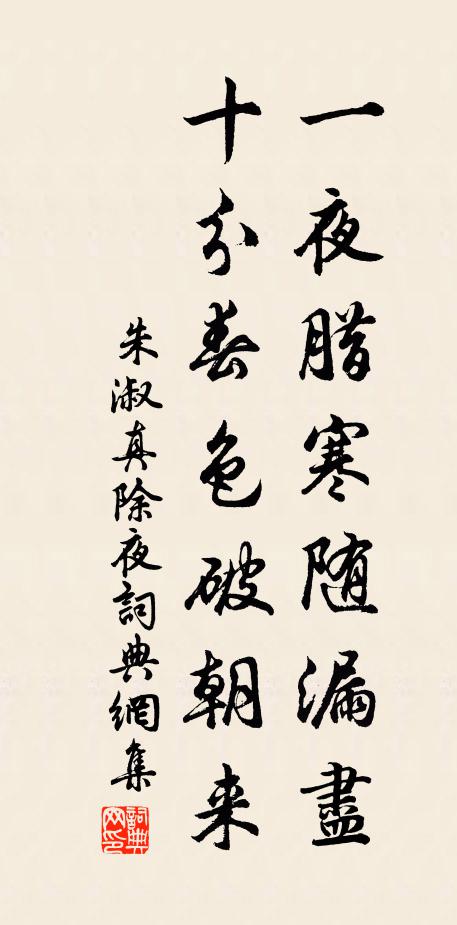 一夜腊寒随漏盡
十分春色破朝来
朱淑真除夜詞典網集
詞典网印